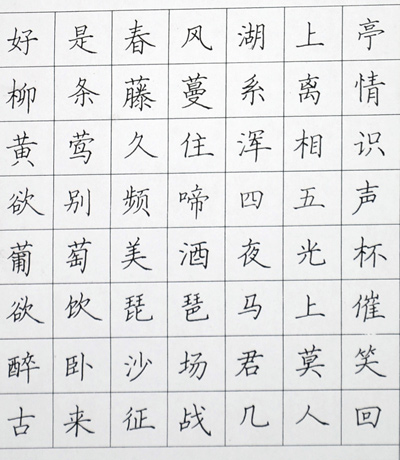 好是春风湖上亭
柳条藤蔓系离情
黄莺久住浑相识
欲别频啼四五声
葡萄美酒夜光杯
欲饮琵琶马上催
醉卧沙场君莫笑
古来征战几人回